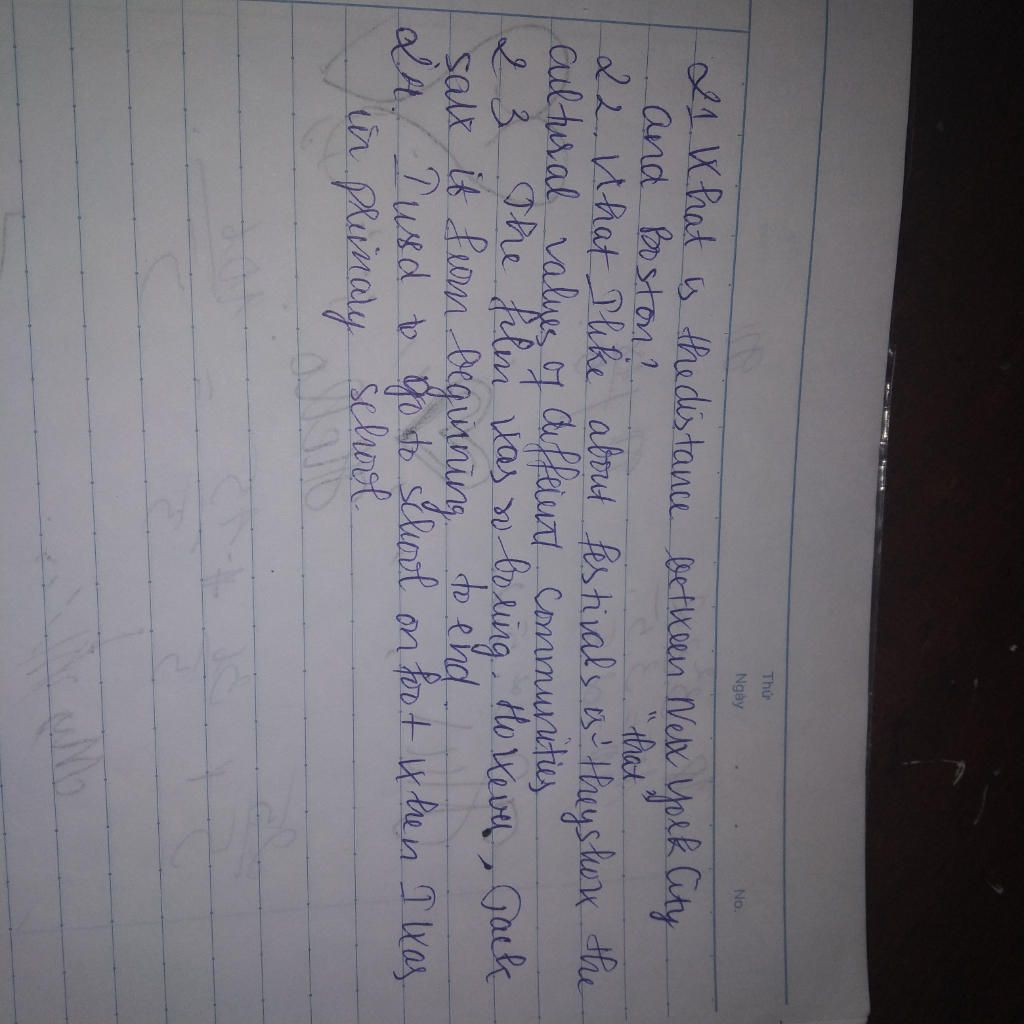 Thứ
Ngày
No.
21 What is the distance between New York City
and Boston?
"that"
22. What I like about festivals is they show the
cultural values of different communities
23 The film was so boring. However, Jack
saw it from beginning to end
24. I used to go to school on foot when I was
in primary school.